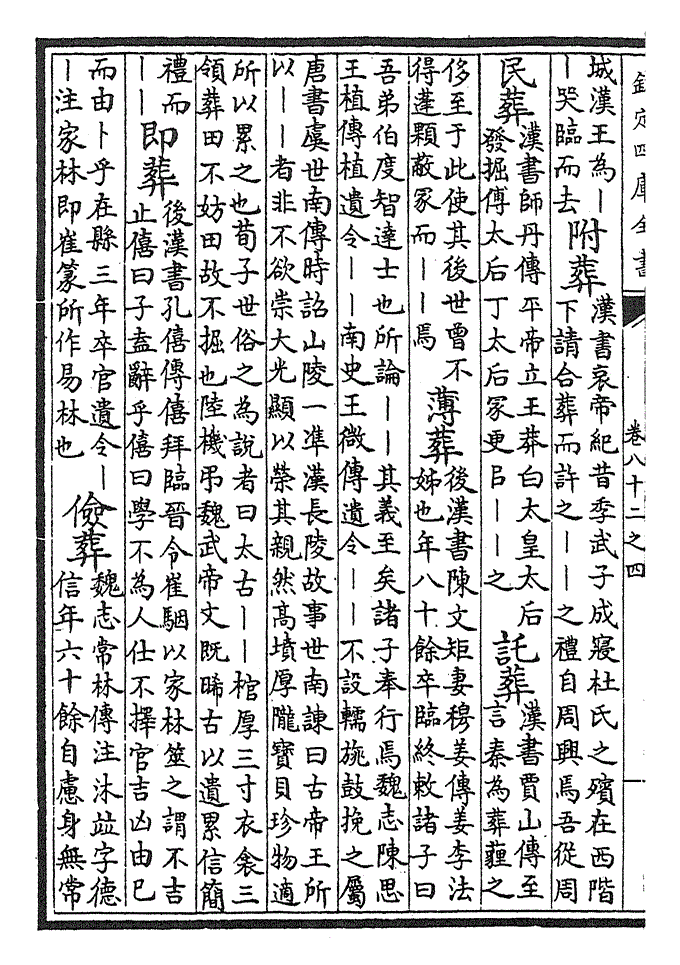 欽定四庫全書
卷八十二之四
城漢王為｜
｜哭臨而去
附葬
漢書哀帝紀昔季武子成寢杜氏之殯在西階
下請合葬而許之｜｜之禮自周興焉吾從周
民葬
漢書師丹傳平帝立王莽白太皇太后
發掘傅太后丁太后冢更㠯｜｜之
託葬
漢書賈山傳至
言秦為葬薶之
侈至于此使其後世曾不
得蓬顆蔽冢而｜｜焉
薄葬
後漢書陳文矩妻穆姜傳姜李法
姊也年八十餘卒臨終敕諸子曰
吾弟伯度智達士也所論｜｜其義至矣諸子奉行焉魏志陳思
王植傳植遺令｜｜南史王微傳遺令｜｜不設轜旐鼓挽之屬
唐書虞世南傳時詔山陵一准漢長陵故事世南諫曰古帝王所
以｜｜者非不欲崇大光顯以榮其親然高墳厚隴寶貝珍物適
所以累之也荀子世俗之為說者曰太古｜｜棺厚三寸衣衾三
領葬田不妨田故不掘也陸機弔魏武帝文既睎古以遺累信簡
禮而
｜｜
即葬
後漢書孔僖傳僖拜臨晉令崔駰以家林筮之謂不吉
止僖曰子盍辭乎僖曰學不為人仕不擇官吉凶由已
而由卜乎在縣三年卒官遺令｜
｜注家林即崔篆所作易林也
儉葬
魏志常林傳注沐竝字德
信年六十餘自慮身無常